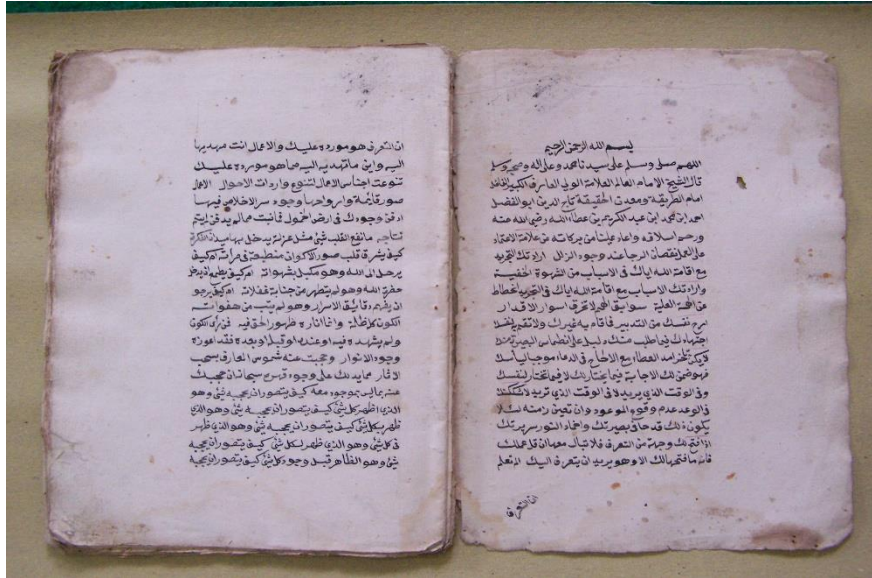 بسم الله الرحمن الرحيم
اللهم صلى وسلم على سيدنا محمد وعلى اله وصحبه وسلم
قال الشيخ الامام العالم العلامة الولي العارف الكبير
امام الطريقة ومعدن الحقيقة تاج الدين ابو الفضل
احمد ابن محمد ابن عبد الكريم بن عطاء الله رضي الله عنه
ورحم اسلافه واعاد علينا من بركاته من علامة الاعتماد
على العمل نقصان الرجا عند وجود الزلل ارادتك التجريد
مع اقامة الله اياك في الاسباب من الشهوة الخفية
وارادتك الاسباب مع اقامة الله اياك في التجريد انحطاط
عن الهمة العلية سوابق الهمم لا تخرق اسوار الاقدار
ارح نفسك من التدبير فما قام به غيرك
اجتهادك فيما طلب منك دليل على انطماس البصيرة منك
لا يكن تاخر امد العطا مع الالحاح في الدعا موجبا ليأسك
فهو ضمن لك الاجابة فيما يختار لك لا فيما تختار لنفسك
وفي الوقت الذي يريد لا في الوقت الذي تريد لا يشككنك
في الوعد عدم وقوع الموعود وان تعين زمنه لئلا
يكون ذلك قدحا في بصيرتك واخماد النور سريرتك
اذا فتح لك وجهة من التعرف فلا تبال معها ان قل عملك
فانه ما فتحها لك الا وهو يريد ان يتعرف اليك الم تعلم
ان التعرف
ان التعرف هو مورده عليك والاعمال انت مهديها
اليه واين ما تهديه اليه مما هو مورده عليك
تنوعت اجناس الاعمال لتنوع واردات الاحوال الاعمال
صور قائمة وارواحها وجود سر الاخلاص فيها
ادفن وجودك في ارض الخمول فما نبت مما لم يدفن لا يتم
نتاجه ما نفع القلب شئ مثل عزلة يدخل بها ميدان الفكرة
كيف يشرق قلب صور الاكوان منطبعة في مراته ام كيف
يرحل الى الله وهو مكبل بشهواته ام كيف يطمع ان يدخل
حضرة الله وهو لم يتطهر من جنابة غفلاته ام كيف يرجو
ان يفهم دقائق الاسرار وهو لم يتب من هفواته
الكون كله ظلمة وانما اناره ظهور الحق فيه فمن رأى الكون
ولم يشهده فيه او عنده او قبله او بعده فقد اعوزه
وجود الانوار وحجبت عنه شموس المعارف بسحب
الاثار مما يدلك على وجود قهره سبحانه ان حجبك
عنه بما ليس بموجود معه كيف يتصور ان يحجبه شئ وهو
الذي اظهر كل شئ كيف يتصور ان يحجبه شئ وهو الذي
ظهر بكل شئ كيف يتصور ان يحجبه شئ وهو الذي ظهر
في كل شئ وهو الذي ظهر لكل شئ كيف يتصور ان يحجبه
شئ وهو الظاهر قبل وجود كل شئ كيف يتصور ان يحجبه